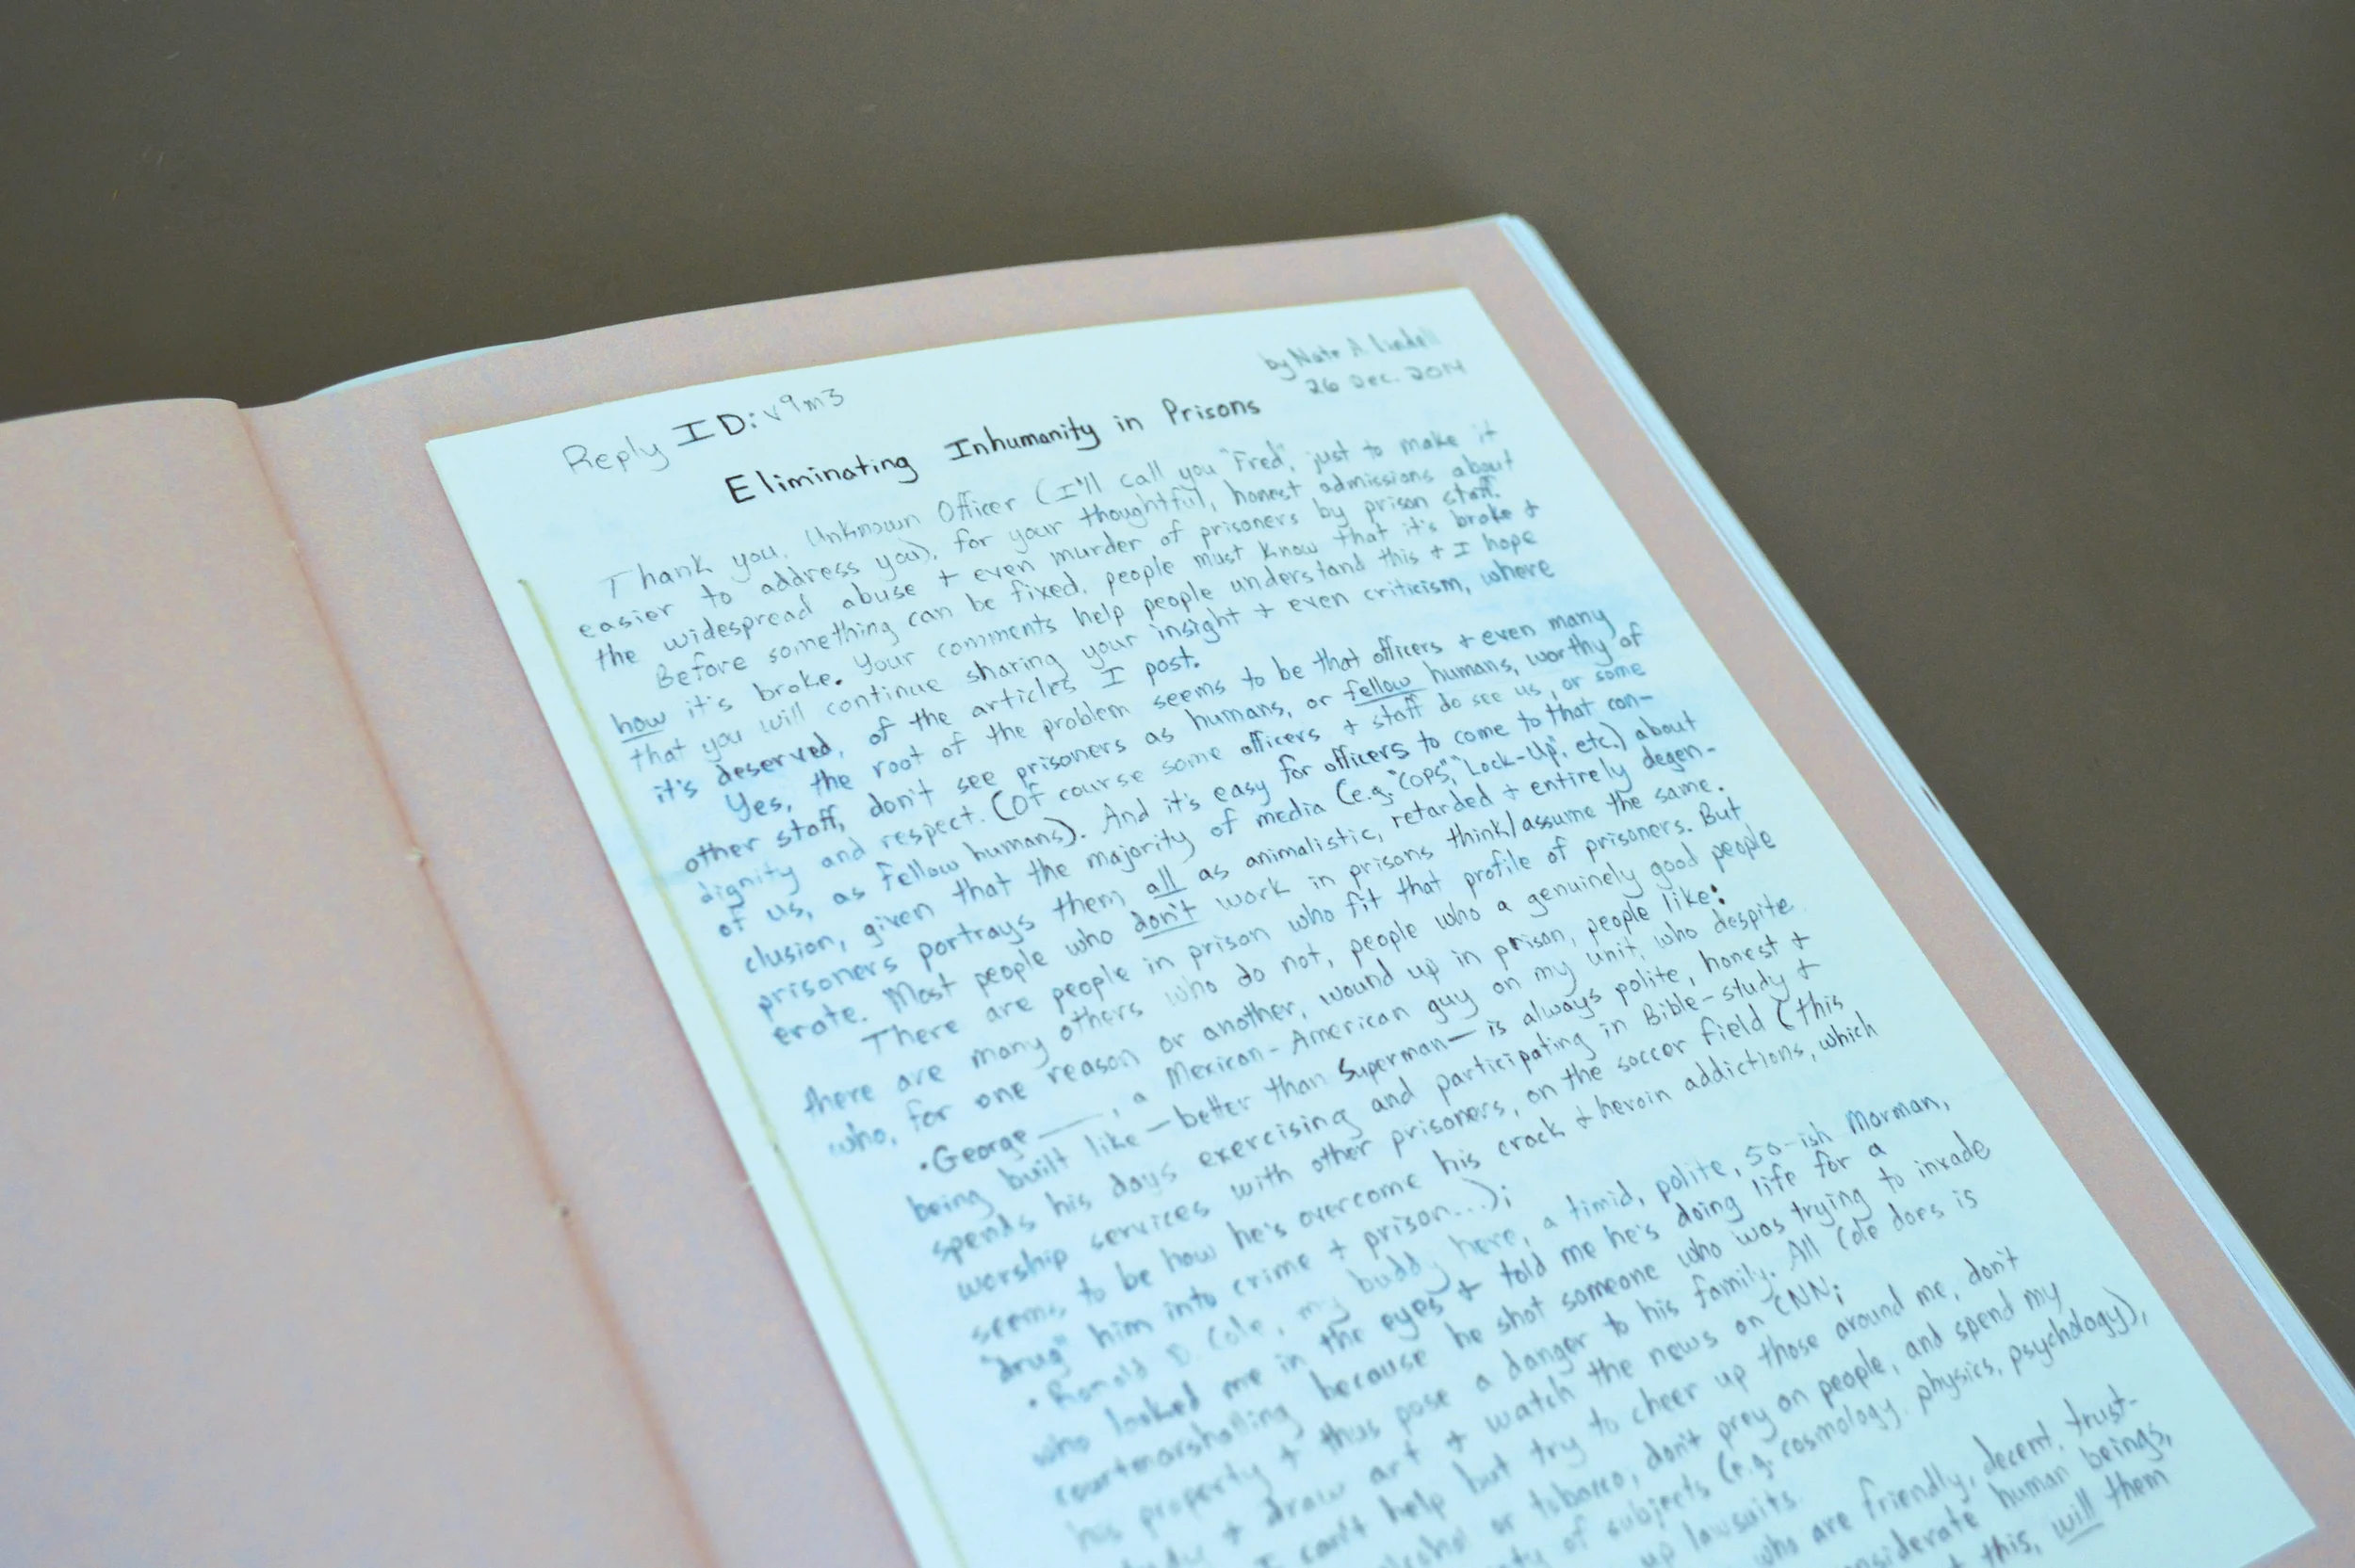 by Nate A. Lindell
26 Dec. 2014
Reply ID: v9m3
Eliminating Inhumanity in Prisons
Thank you, Unknown Officer (I'll call you "Fred", just to make it
easier to address you), for your thoughtful, honest admissions about
the widespread abuse + even murder of prisoners by prison staff.
Before something can be fixed, people must know that it's broke +
how it's broke. Your comments help people understand this + I hope
that you will continue sharing your insight + even criticism, where
it's deserved, of the articles I post.
Yes, the root of the problem seems to be that officers + even many
other staff, don't see prisoners as humans, or fellow humans, worthy of
dignity and respect. (Of course some officers + staff do see us, or some
of us, as fellow humans). And it's easy for officers to come to that con-
clusion, given that the majority of media (e.g. "COPS", "Lock-Up", etc.) about
prisoners portrays them all as animalistic, retarded + entirely degen-
erate. Most people who don't work in prisons think/assume the same.
There are people in prison who fit that profile of prisoners. But
there are many others who do not, people who a genuinely good people
who, for one reason or another, wound up in prison, people like:
• George ——, a Mexican-American guy on my unit, who despite
being built like — better than Superman — is always polite, honest +
spends his days exercising and participating in Bible-study +
worship services with other prisoners, on the soccer field (this
seems to be how he's overcome his crack + heroin addictions, which
"drug" him into crime + prison...);
• Ronald D. Cole, my buddy here, a timid, polite, 50-ish Morman,
who looked me in the eyes + told me he's doing life for a
courtmarshalling because he shot someone who was trying to invade
his property + thus pose a danger to his family. All Cole does is
study + draw art + watch the news on CNN;
I can't help but try to cheer up those around me, don't
alcohol or tobacco, don't prey on people, and spend my
of subjects (e.g. cosmology, physics, psychology),
up lawsuits.
who are friendly, decent, trust-
considerate human beings,
this, will them